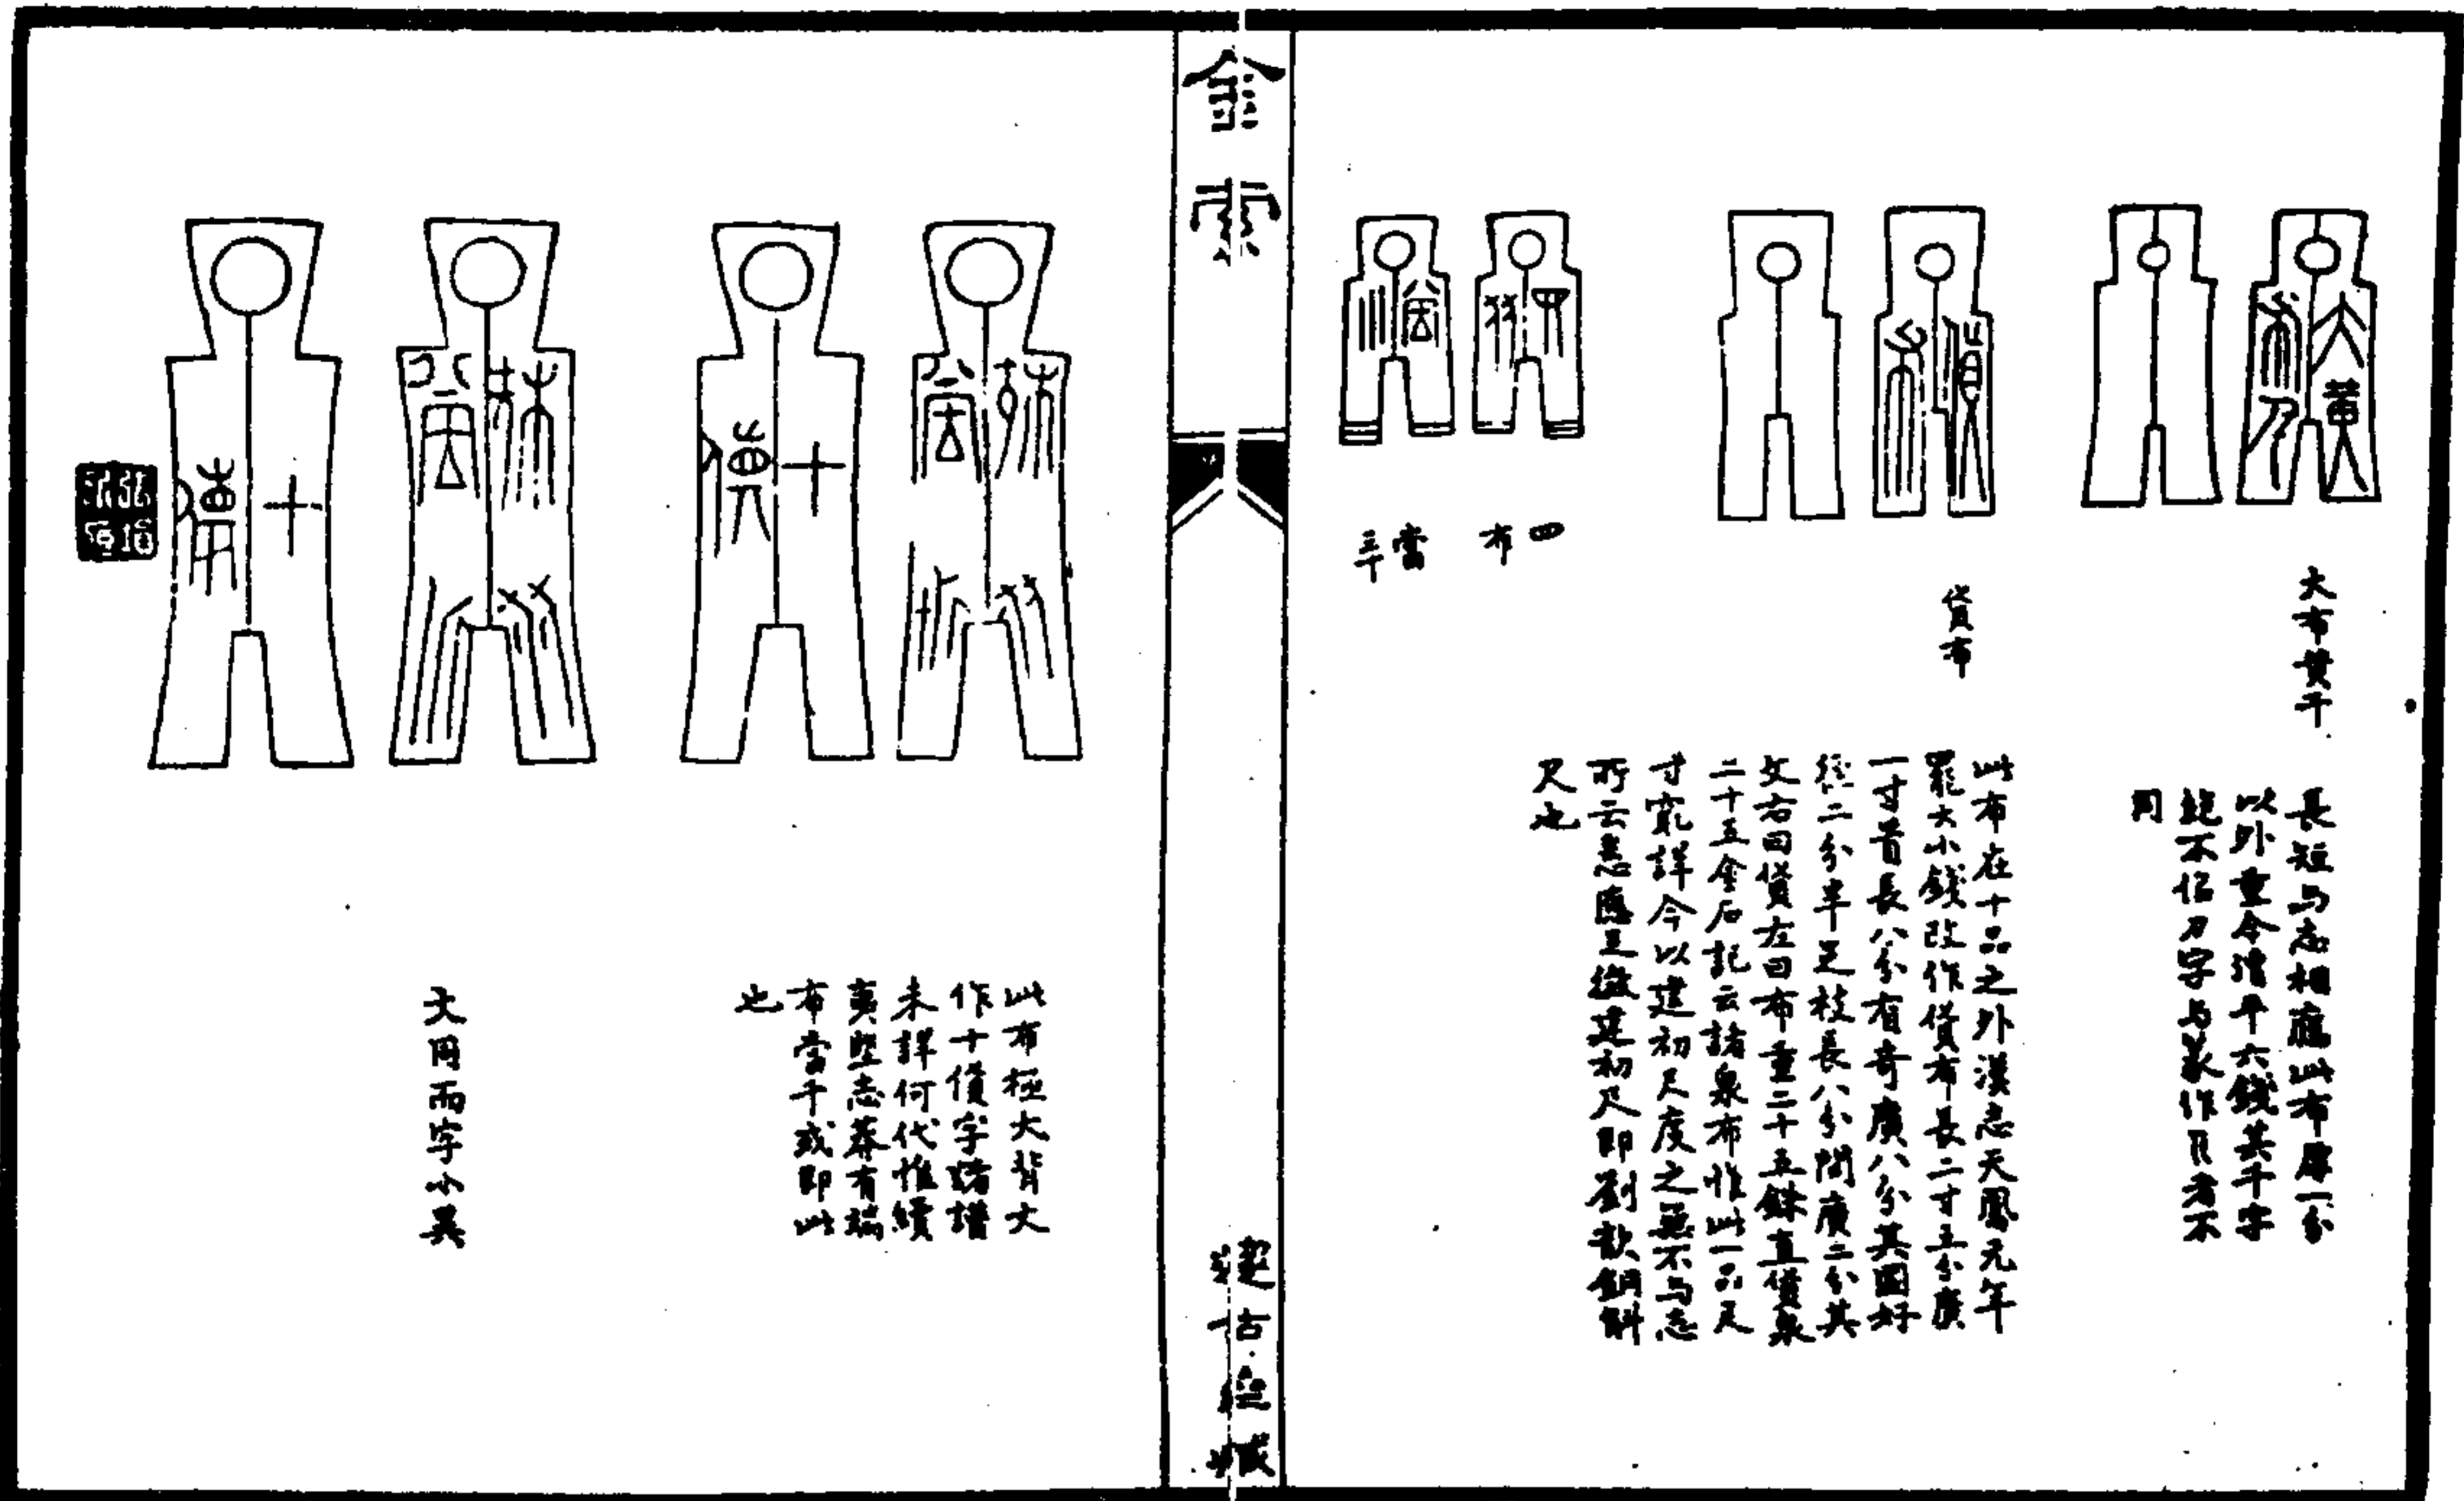 大布黄千
長短与志相應此布厚一分
以外重今漕平六錢其千字
不作刀字与篆作者不
同
貨布
此布在十品之外漢志天鳳元年
罷大小錢改作貨布長二寸五分廣
一寸首長八分有奇廣八分其圜好
徑二分半足枝長八分間廣二分其
文右曰貨左曰布重二十五銖直貨泉
二十五金石記云諸泉布惟此一品尺
寸寬詳今以建初尺度之無不与志
所云悉應益徵建初尺即劉歆銅斛
尺也
四
布
當
金索
遽古齋藏
此布極大背文
作十貨字諸譜
未詳何代惟續
夷堅志莽有端
布當千或即此
也
十貨
文同而字小異
十貨